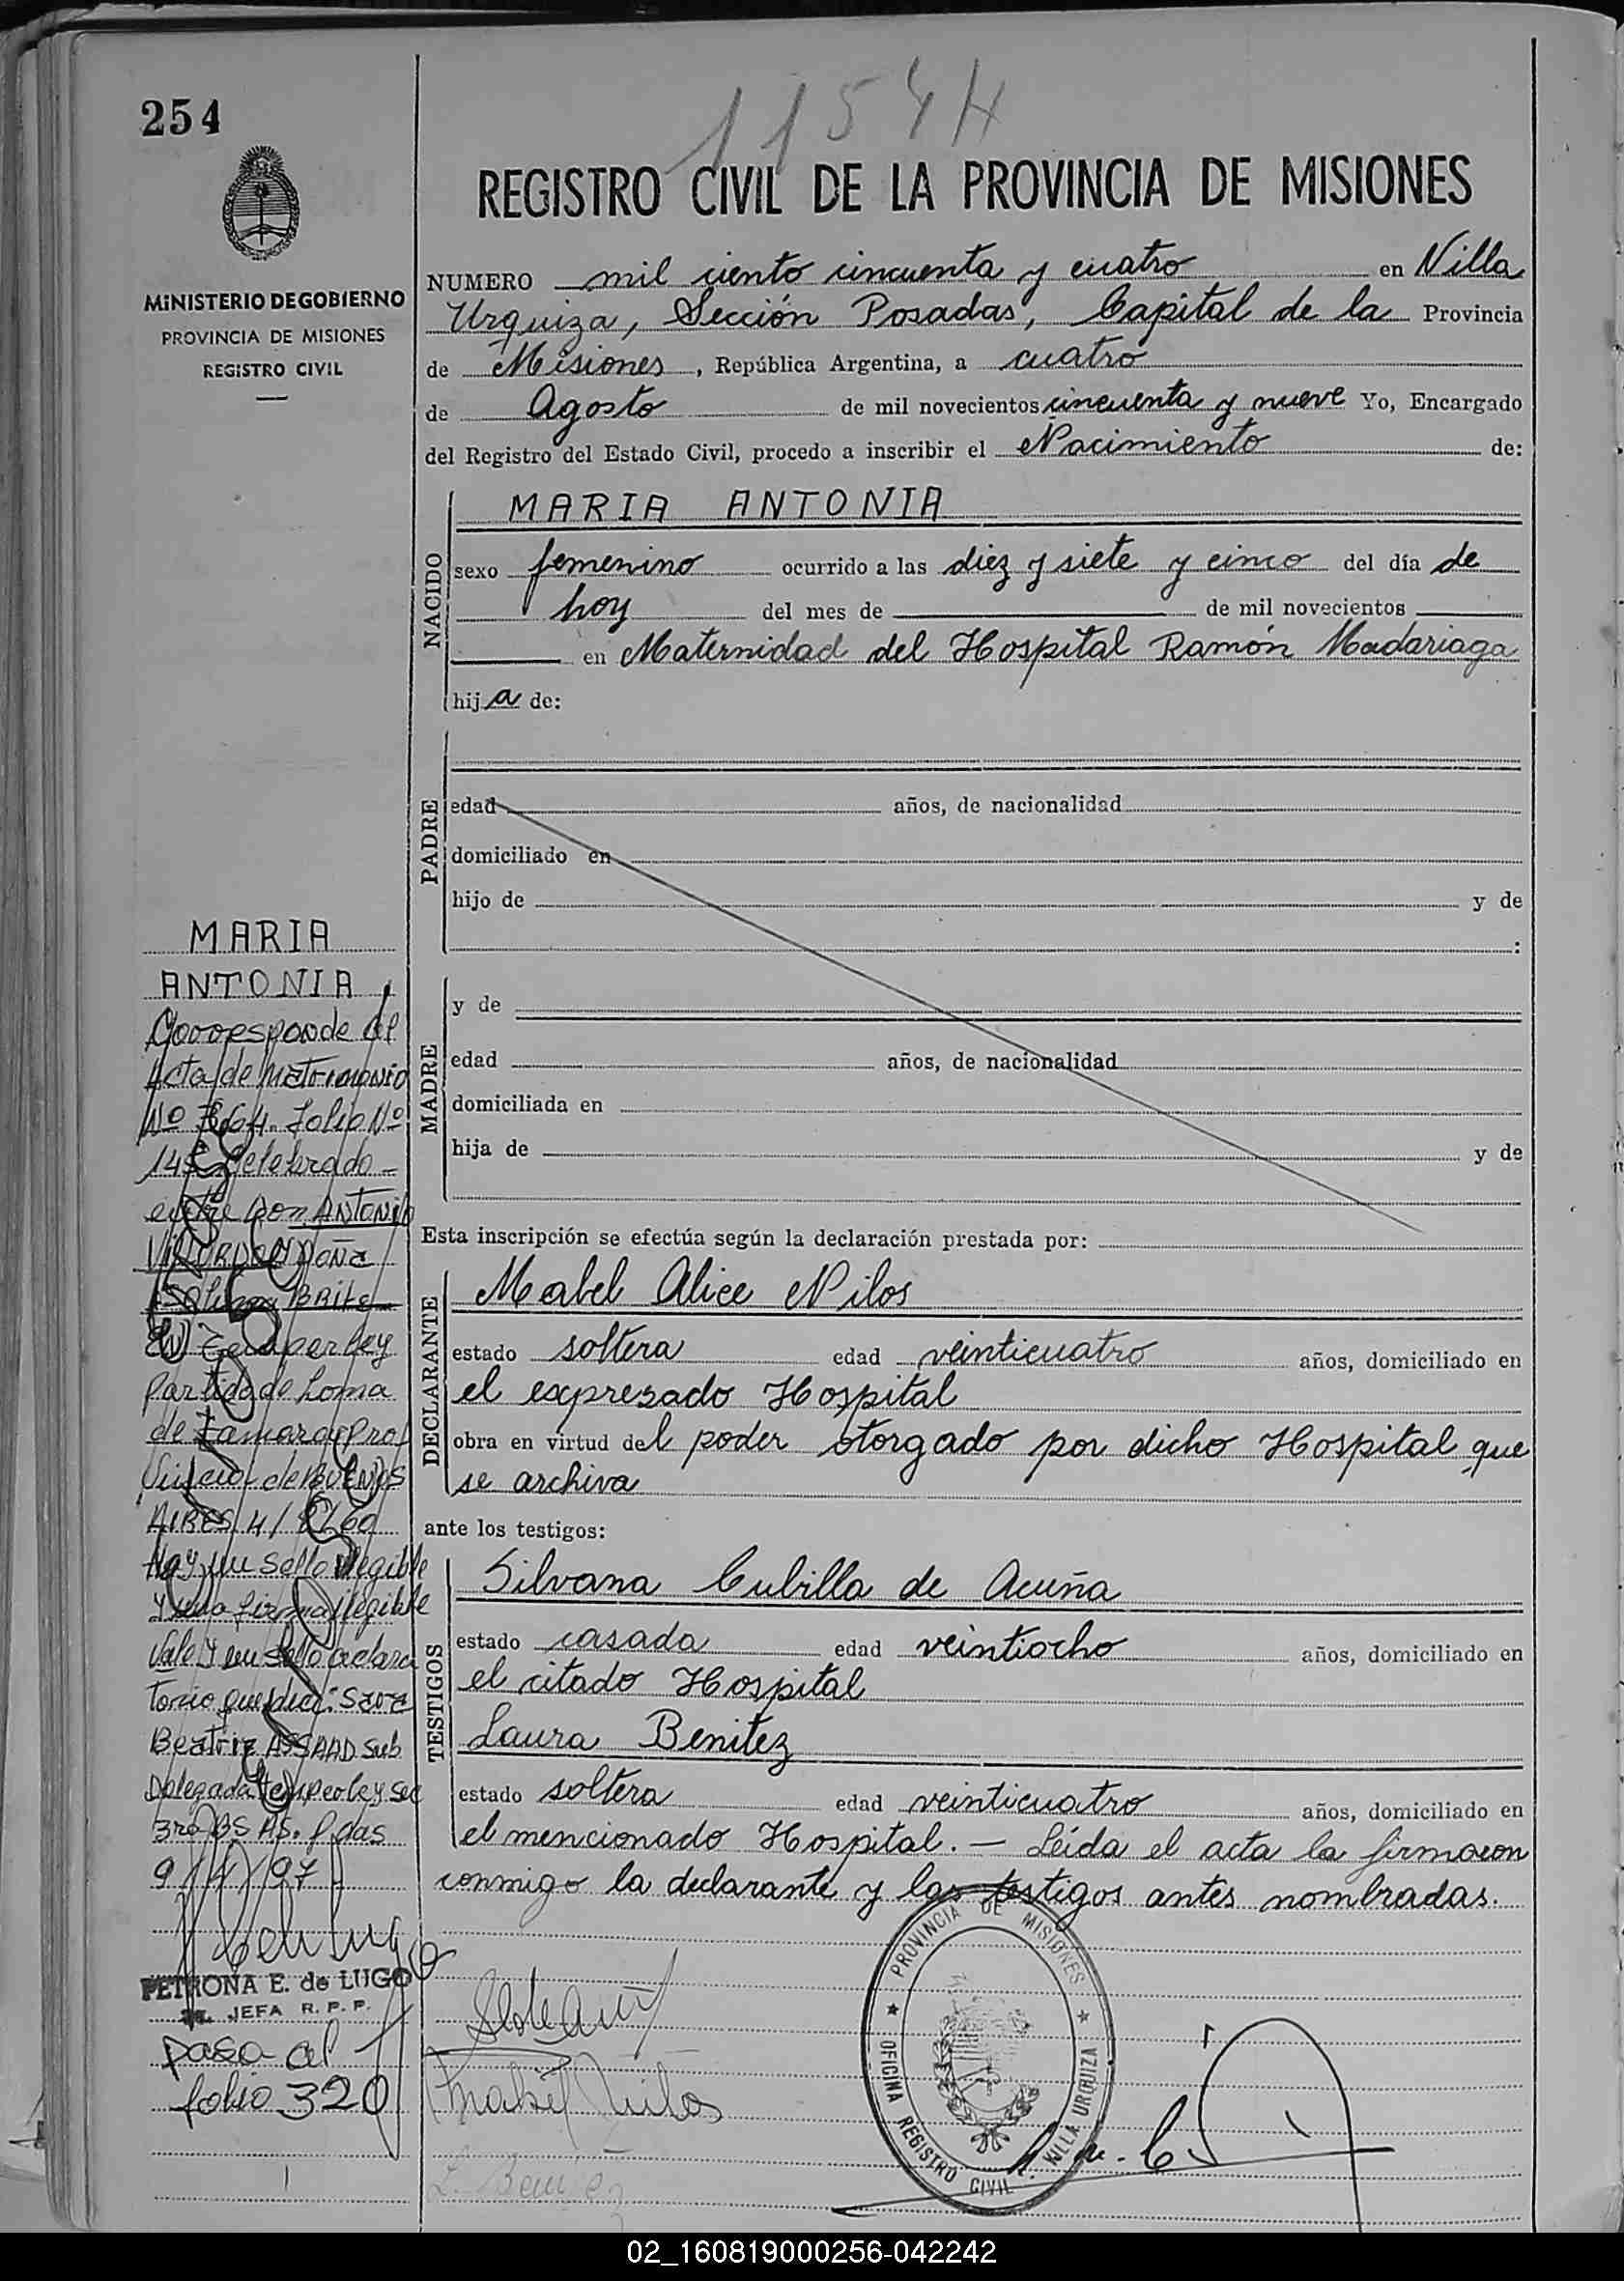 1154 H
254
REGISTRO CIVIL DE LA PROVINCIA DE MISIONES
MINISTERIO DE GOBIERNO
PROVINCIA DE MISIONES
REGISTRO CIVIL
NUMERO mil ciento cincuenta y cuatro en Villa
Urquiza, Sección Posadas, Capital de la Provincia
de Misiones, República Argentina, a cuatro
de Agosto de mil novecientos cincuenta y nueve Yo, Encargado
del Registro del Estado Civil, procedo a inscribir el Nacimiento de:
NACIDO
MARIA ANTONIA
sexo femenino ocurrido a las diez y siete y cinco del día de
hoy del mes de de mil novecientos
en Maternidad del Hospital Ramón Madariaga
hija de:
PADRE
edad años, de nacionalidad
domiciliado en
hijo de y de
:
MADRE
y de
edad años, de nacionalidad
domiciliada en
hija de y de
Esta inscripción se efectúa según la declaración prestada por:
DECLARANTE
Mabel Alice Nilos
estado soltera edad veinticuatro años, domiciliado en
el expresado Hospital
obra en virtud del poder otorgado por dicho Hospital que
se archiva
ante los testigos:
TESTIGOS
Silvana Cubilla de Acuña
estado casada edad veintiocho años, domiciliado en
el citado Hospital
Laura Benitez
estado soltera edad veinticuatro años, domiciliado en
el mencionado Hospital. — Leída el acta la firmaron
conmigo la declarante y las testigos antes nombradas.
MARIA
ANTONIA
Corresponde al
Acta de Matrimonio
Nº Folio Nº
celebrado
entre Don ANTONIO
DOÑA
BRITE
EN
Partido de Loma
de Zamora Prof
Vincia de BUENOS
AIRES 4/
Hay un Sello ilegible
y una firma ilegible
Vale y un sello aclara
torio que dice: Sara
Beatriz ASSAAD Sub
Delegada Temperley Sec
3ra BS AS. Pdas
9/4/97
PETRONA E. de LUGO
JEFA R. P. P.
pasa al
folio 320
Mabel Nilos
L. Benitez
PROVINCIA DE MISIONES
OFICINA REGISTRO CIVIL VILLA URQUIZA
02_160819000256-042242